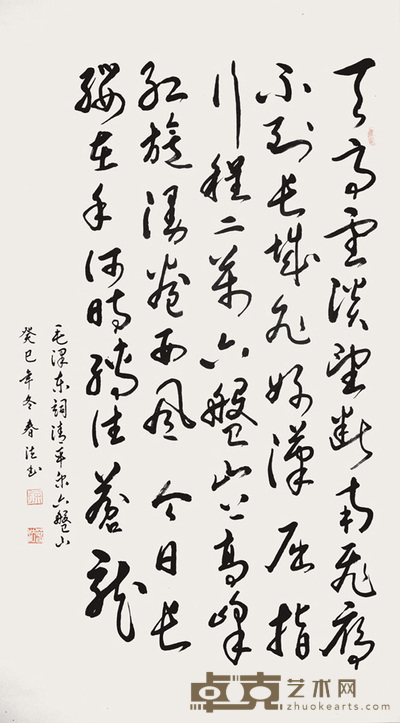 天高云淡望断南飞雁
不到长城非好汉屈指
行程二万六盘山上高峰
红旗漫卷西风今日长
缨在手何时缚住苍龙
毛泽东词清平乐六盘山
癸巳年冬春法书
卓克艺术网
zhuokearts.com